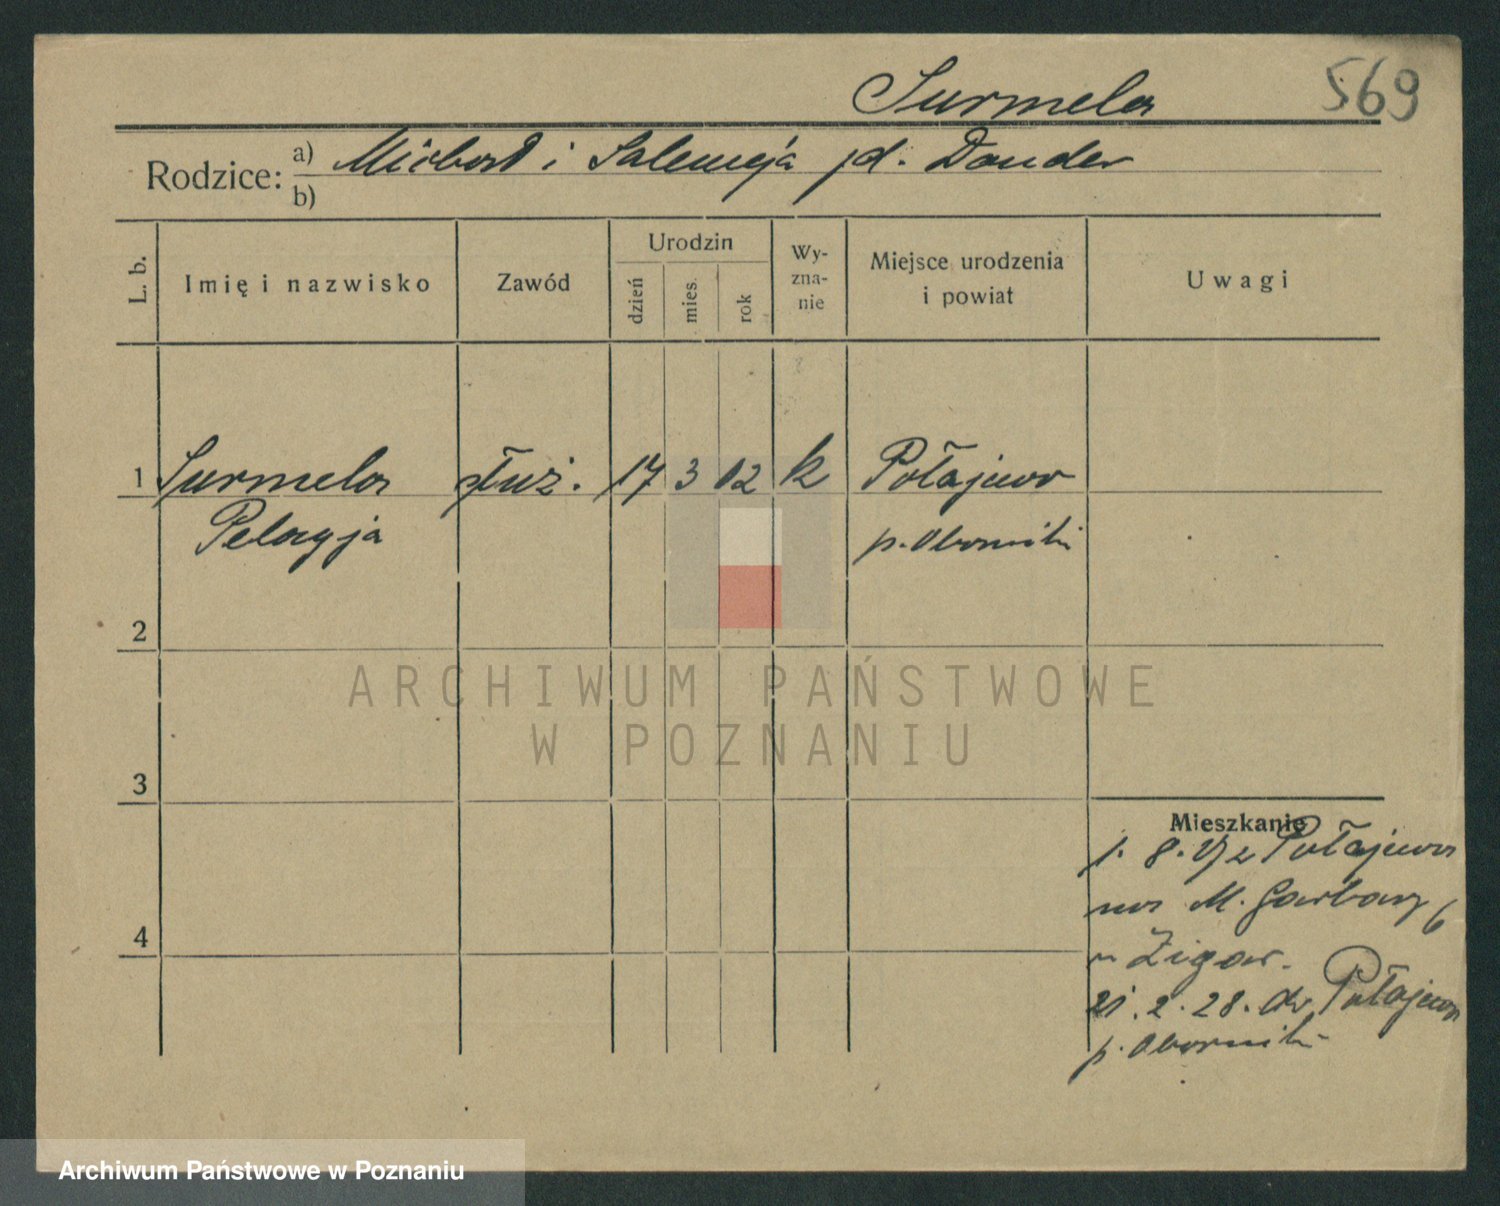 Surmela
569
Rodzice: a) Michał i Salomeja p d. Dander
b)
L. b.
Imię i nazwisko
Zawód
Urodzin
dzień
mies.
rok
Wy-
zna-
nie
Miejsce urodzenia
i powiat
Uwagi
1 Surmela służ. 17 3 02 k Połajewo
Pelagja p. Oborniki
2
3
4
Mieszkanie
1. 8. 27 z Połajewa
na M. Garbary 6
u
21. 2. 28. do Połajewa
p. Oborniki
ARCHIWUM PAŃSTWOWE
W POZNANIU
Archiwum Państwowe w Poznaniu